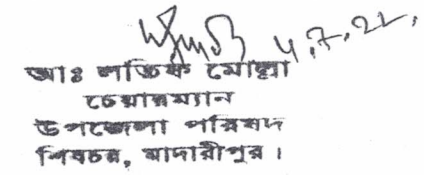 ৫.7.22.
আঃ লতিফ মোল্লা
চেয়ারম্যান
উপজেলা পরিষদ
শিবচর, মাদারীপুর।